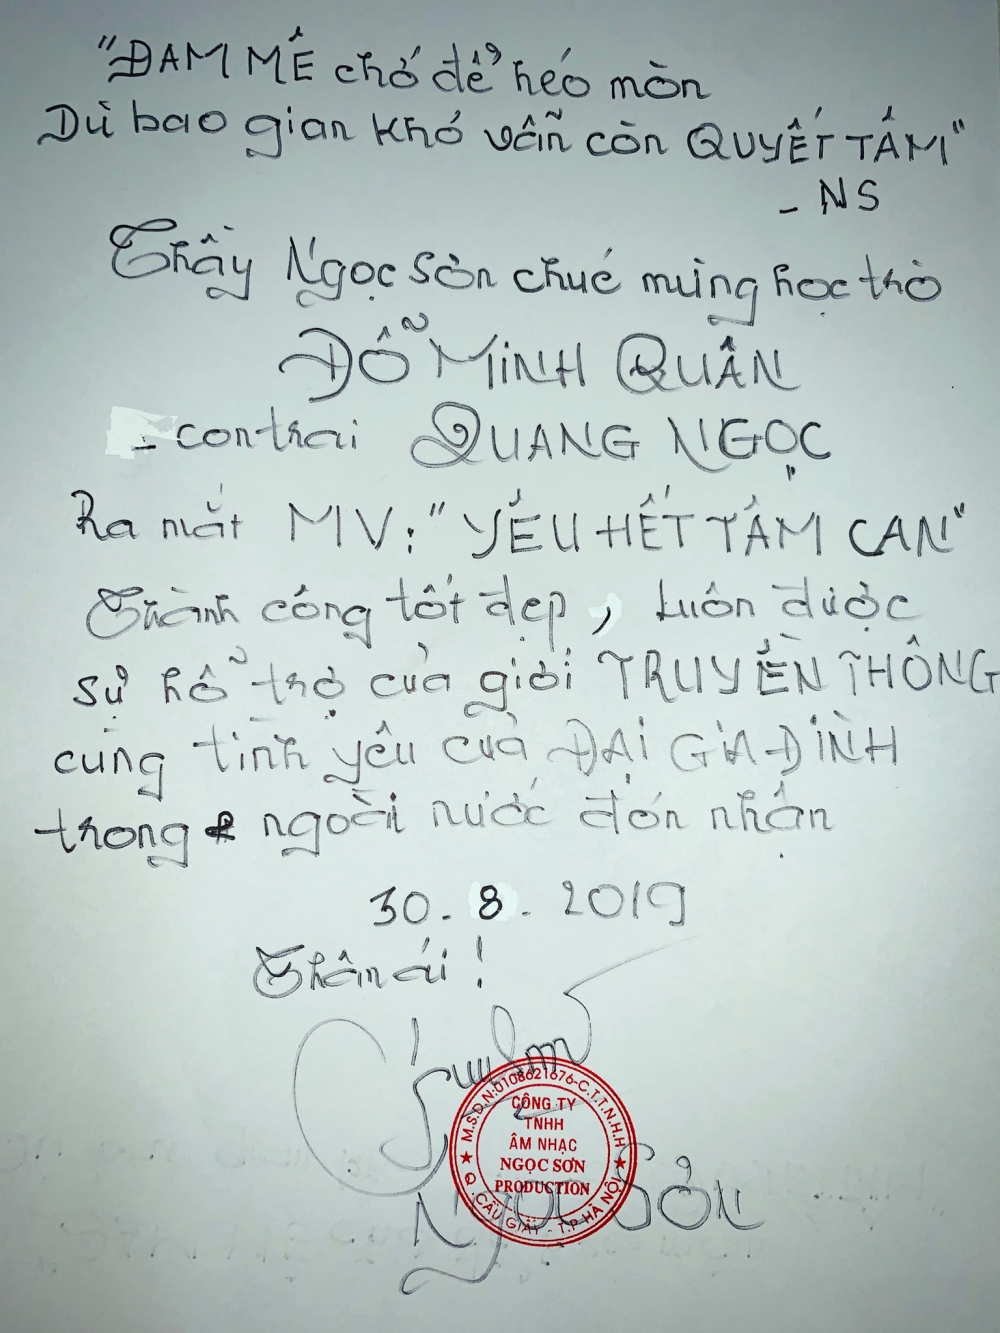 "ĐAM MÊ chớ để héo mòn
Dù bao gian khó vẫn còn QUYẾT TÂM"
- NS
Thầy Ngọc Sơn chúc mừng học trò
ĐỖ MINH QUÂN
- con trai QUANG NGỌC
Ra mắt MV: "YÊU HẾT TÂM CAN"
Thành công tốt đẹp, luôn được
sự hỗ trợ của giới TRUYỀN THÔNG
cùng tình yêu của ĐẠI GIA ĐÌNH
trong & ngoài nước đón nhận
30.8.2019
Thân ái!
M.S.D.N:0108621676-C.T.T.N.H.H
CÔNG TY
TNHH
ÂM NHẠC
NGỌC SƠN
PRODUCTION
Q. CẦU GIẤY - T.P HÀ NỘI
NGỌC SƠN